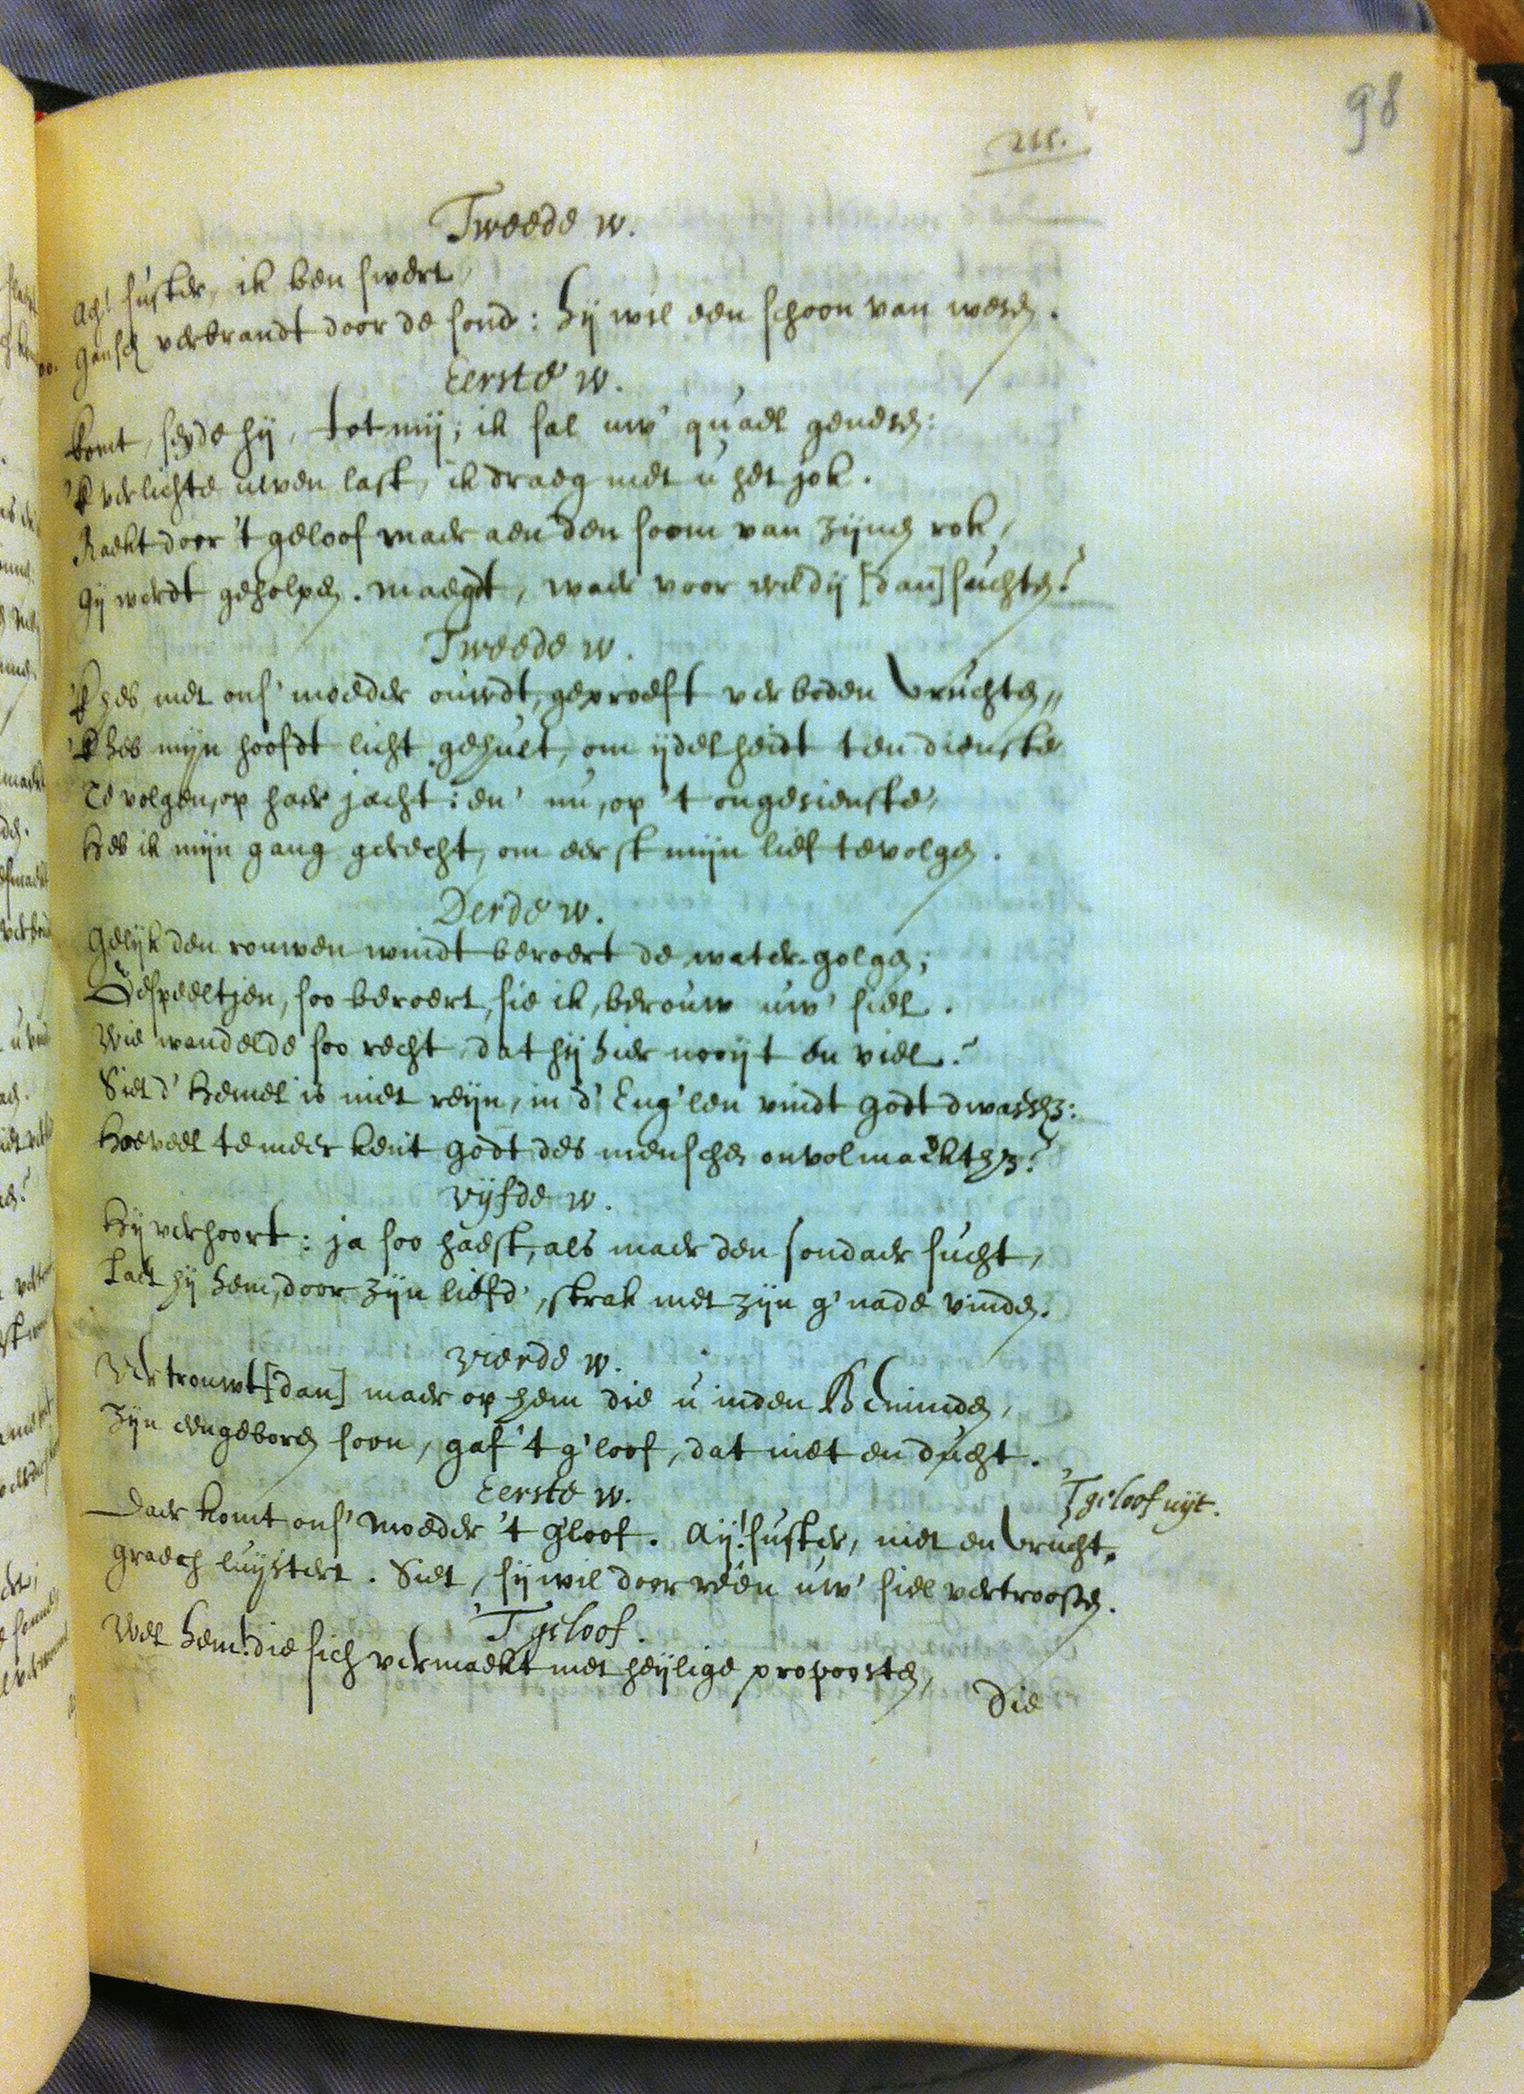 98
215.
Tweede w.
Ach! suster, ik ben swert
gansch verbrandt door de sond: hij wil een schoon van wesen.
Eerste w.
komt, seyde hij, tot mij; ik sal uw' quael genesen:
'k verlichte uwen last, ik draeg met u het jok.
Raekt door 't geloof maer aen den soom van zijnen rok,
gij werdt geholpen. maegdt, waer voor wildij [dan] suchten?
Tweede w.
'k heb met ons' moeder oudt, geproeft verboden vruchten,,
'k heb mijn hooft licht gehult, om ijdelheidt ten dienste
te volgen, op haer jacht: en' nu, op 't ongesienste,
heb ik mijn gang gerecht, om eerst mijn lief te volgen.
Derde w.
Gelijk den rouwen windt beroert de water-golgen;
Gespeeltjen, soo beroert, sie ik, berouw uw' siel.
Wie wandelde soo recht dat hij hier nooijt en viel?
Siet d' hemel is niet reyn, in d' Eng'len vindt godt dwaesh:
hoeveel te meer kent godt des menschen onvolmaekth?
vijfde w.
hij verhoort: ja soo haest, als maer den sondaer sucht,
Laet hij hem, door zijn liefd', strak met zijn g'nade vinden.
vierde w.
Vertrouwt [dan] maer op hem die u inden Beminden,
Zijn eengeboren soon, gaf 't g'loof, dat niet en ducht.
'T geloof uijt.
Eerste w.
Daer komt ons' moeder 't g'loof. Aij! suster, niet en vrucht,
graech luijstert. Siet, sij wil door reen uw' siel vertroosten.
'T geloof.
Wel hem! die sich vermaekt met heylige propoosten,
Die